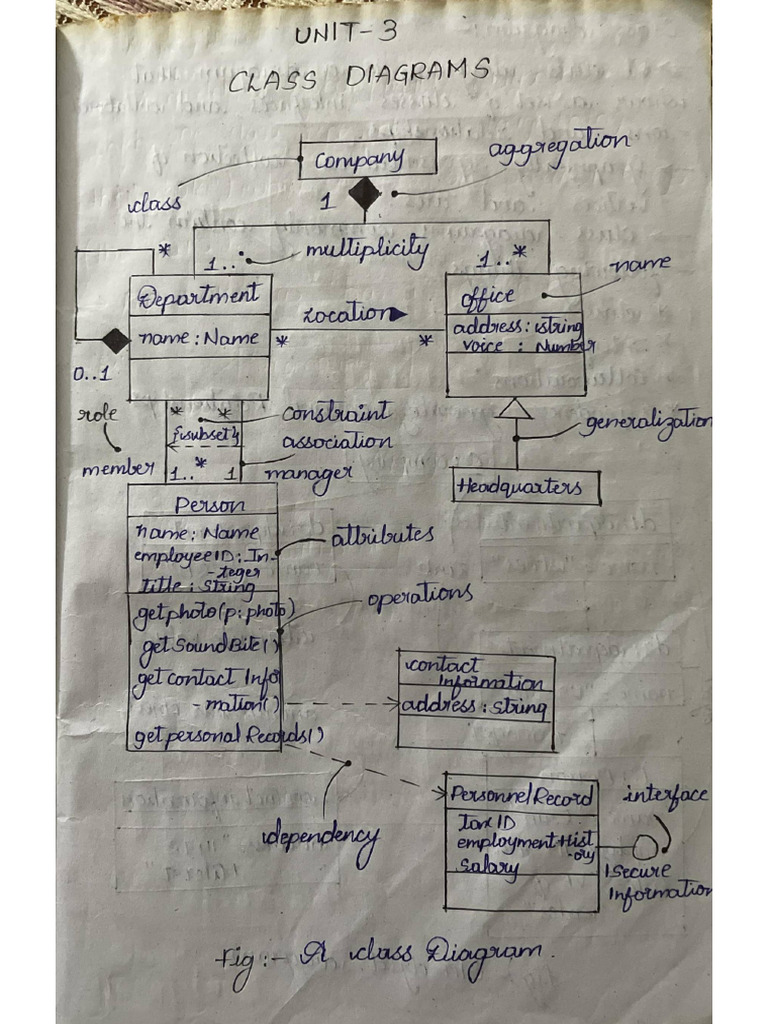 UNIT-3
CLASS DIAGRAMS
Company
aggregation
class
1
*
multiplicity
1..*
1..*
name
Department
Location
office
name: Name
*
*
address: string
voice : Number
0..1
role
*
*
constraint
generalization
{subset}
association
member
1..*
1
manager
Headquarters
Person
name: Name
attributes
employeeID: In-
-teger
title: String
operations
getphoto(p: photo)
getSoundBite()
getcontact Info
-mation()
contact
Information
address: String
getpersonal Records()
PersonnelRecord
interface
TaxID
dependency
employmentHist
-ory
Salary
ISecure
Information
Fig:- A class Diagram.